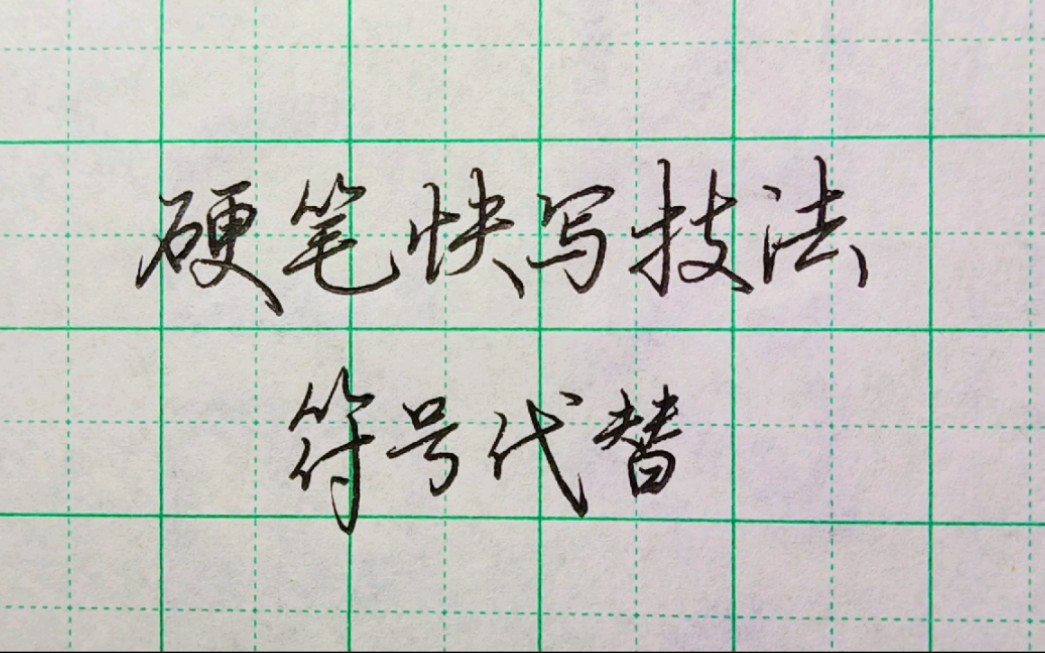 硬笔快写技法
符号代替